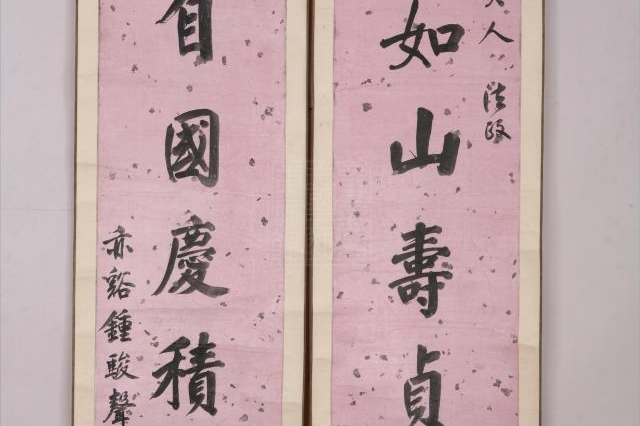 人 法政
如山壽貞
國慶積
亦谿鍾駿聲